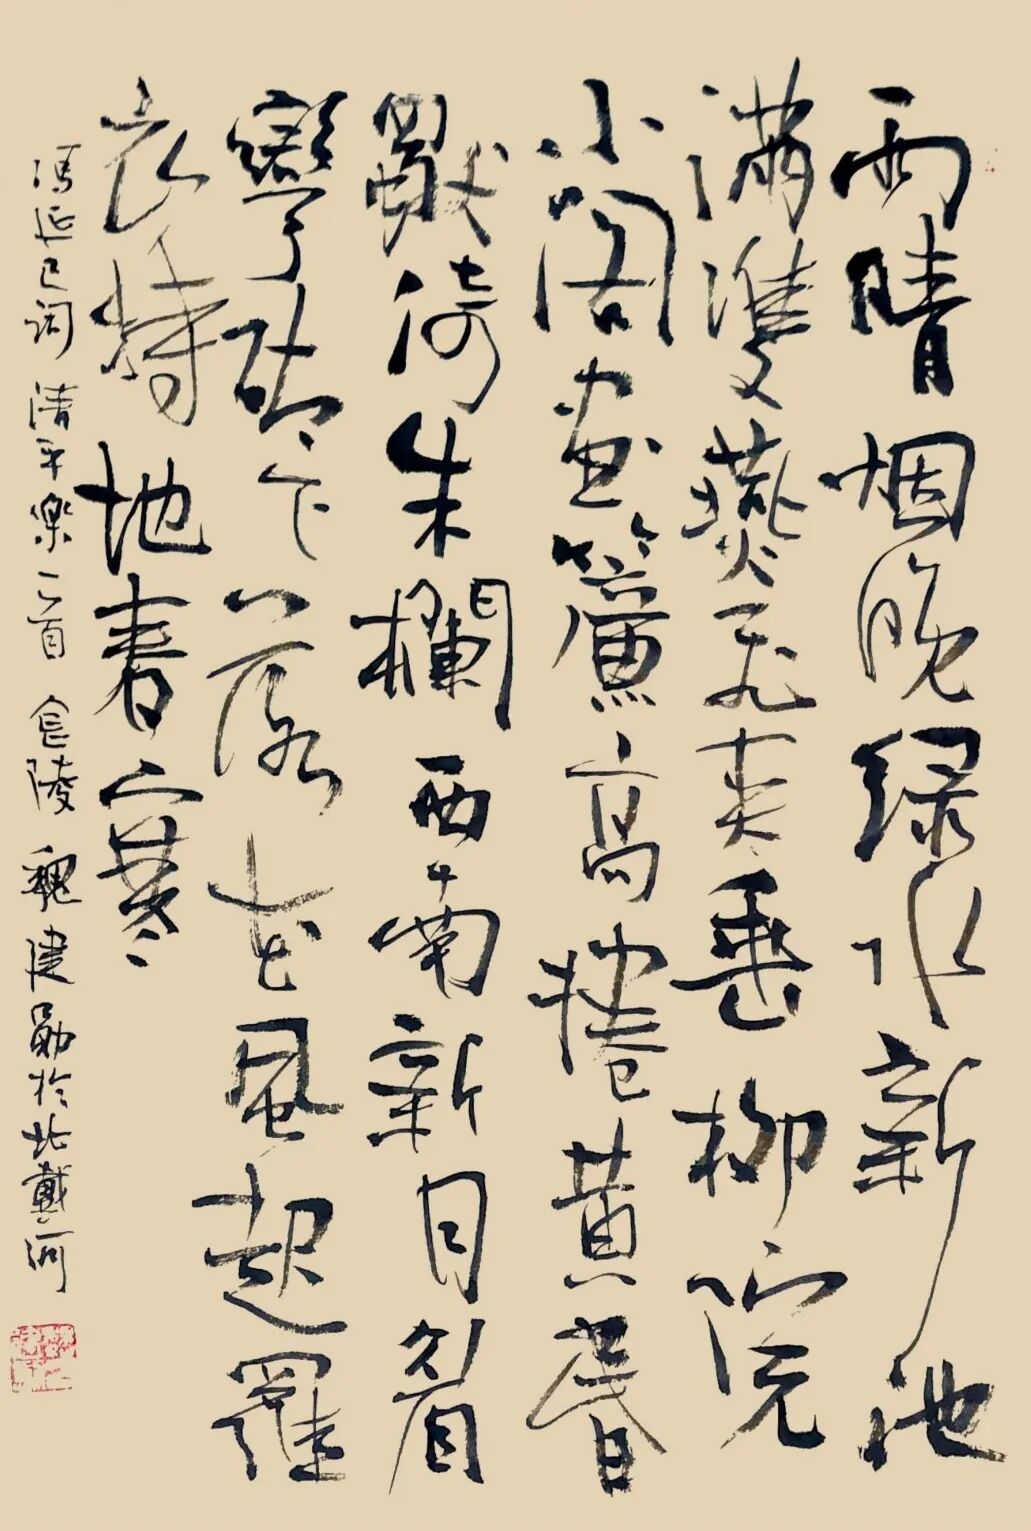 雨晴烟晚绿水新池
满双燕飞来垂柳院
小阁画帘高捲黄昏
独倚朱欄西南新月眉
砌下落花风起羅
衣特地春寒
冯延巳词清平樂一首金陵魏建勋於北戴河